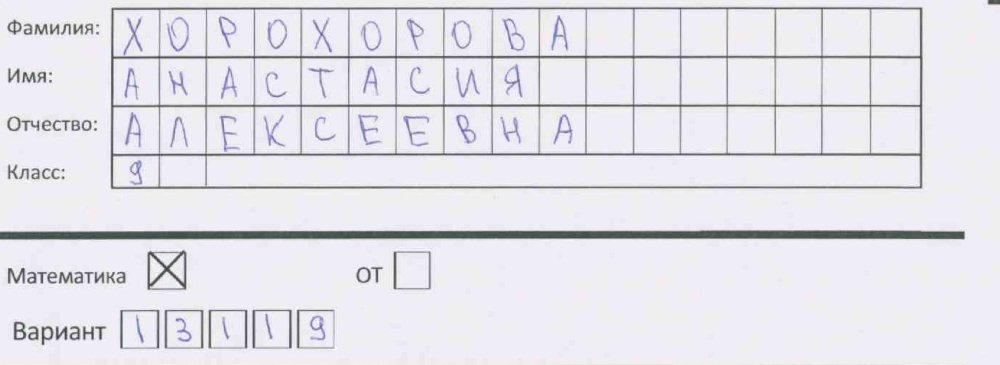 Фамилия: ХОРОХОРОВА
Имя: АНАСТАСИЯ
Отчество: АЛЕКСЕЕВНА
Класс: 9
Математика ☒ ОТ ☐
Вариант 13119